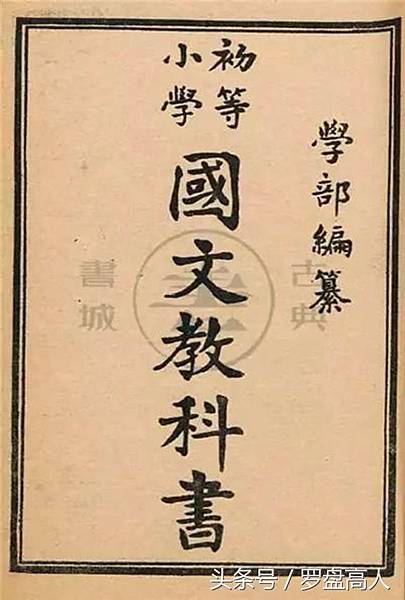 學部編纂
初等
小學
國文教科書
古典
書城
头条号／罗盘高人